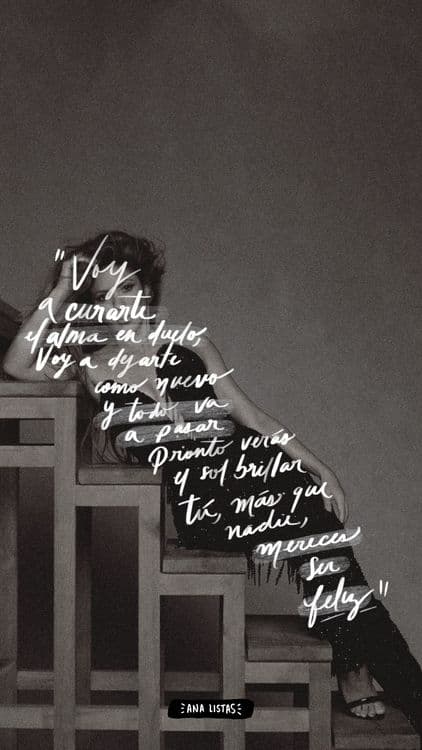 "Voy
a curarte
el alma en duelo,
Voy a dejarte
como nuevo
y todo va
a pasar
Pronto verás
y sol brillar
tú, más que
nadie,
mereces
ser
feliz"
ANA LISTAS